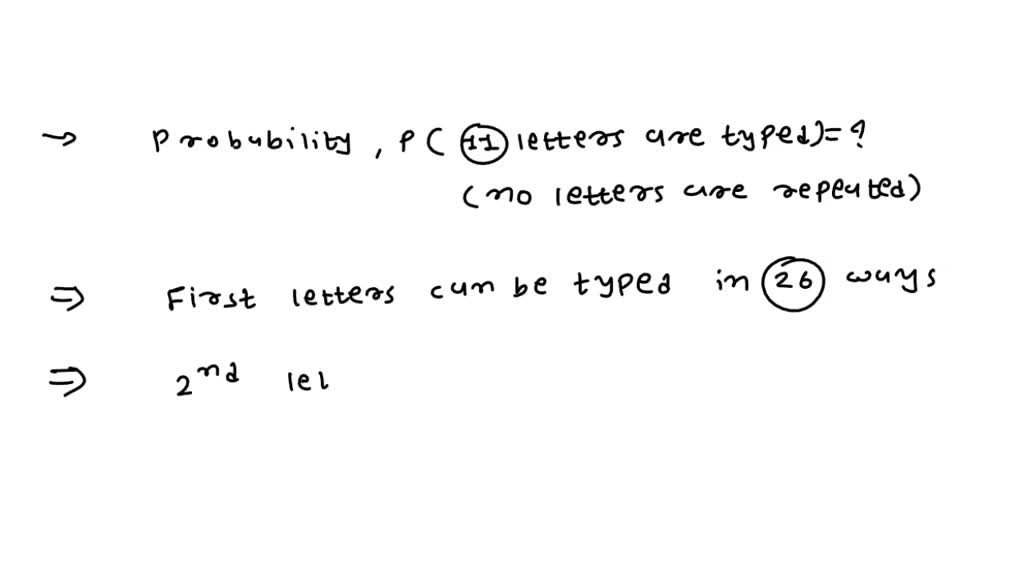 → Probability, P(11 letters are typed)=?
(no letters are repeated)
⇒ First letters can be typed in 26 ways
⇒ 2nd let